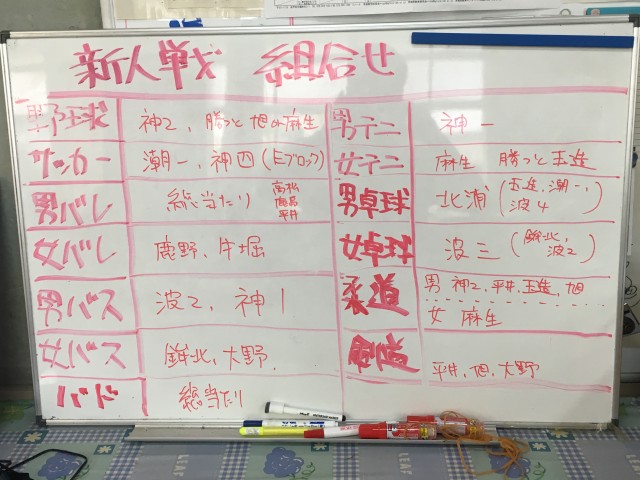 新人戦 組合せ
野球 神2、勝つと 旭or麻生
サッカー 潮一、神四(Eブロック)
男バレ 総当たり 高松
鹿島
平井
女バレ 鹿野、牛堀
男バス 波2、神1
女バス 鉾北、大野、
バド 総当たり
男テニ 神一
女テニ 麻生 勝つと 玉造
男卓球 北浦(玉造、潮一、
波4)
女卓球 波三(鉾北、
波2)
柔道 男 神2、平井、玉造、旭
女 麻生
剣道 平井、旭、大野
LEAF
LEAF